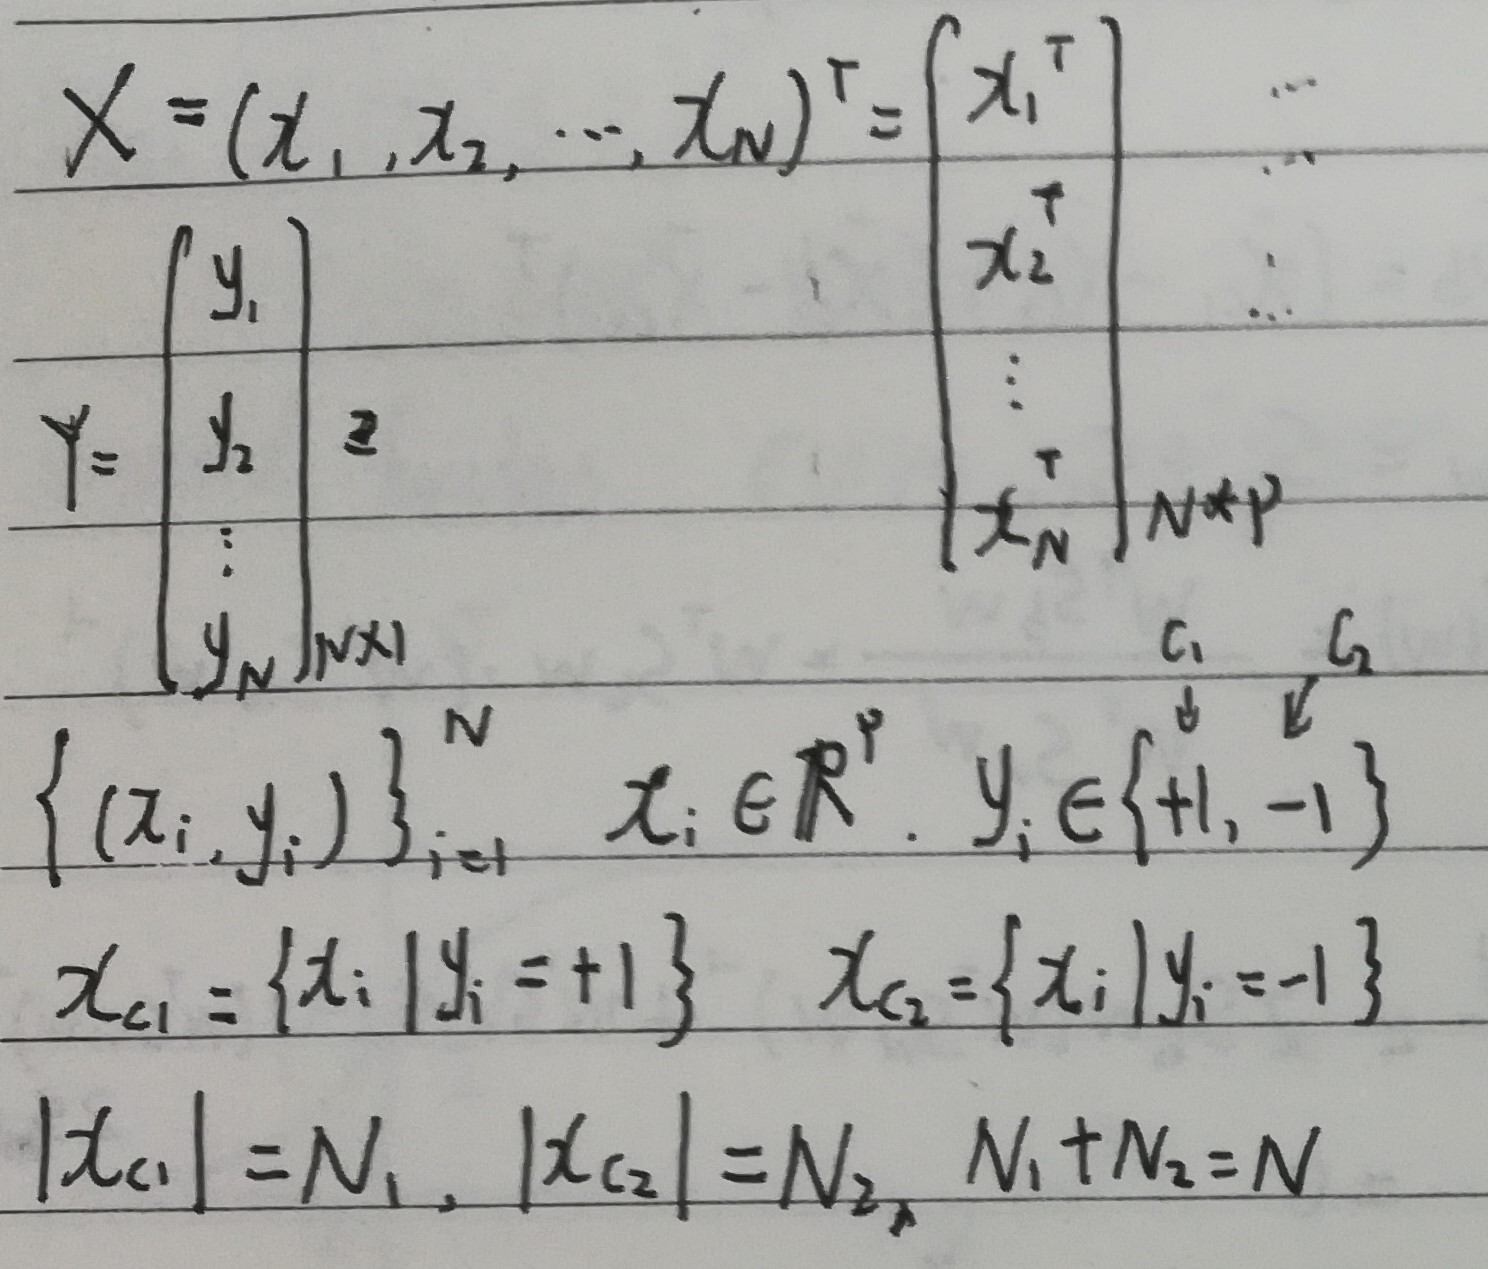 X = (x₁, x₂, ⋯, x_N)ᵀ = [x₁ᵀ x₂ᵀ ⋮ x_Nᵀ] N*P
Y = [y₁ y₂ ⋮ y_N] N×1
C₁ C₂
↓ ↙
{(x_i, y_i)}_{i=1}^N x_i ∈ ℝᵖ. y_i ∈ {+1, -1}
x_{c1} = {x_i | y_i = +1} x_{c2} = {x_i | y_i = -1}
|x_{c1}| = N₁, |x_{c2}| = N₂, N₁ + N₂ = N